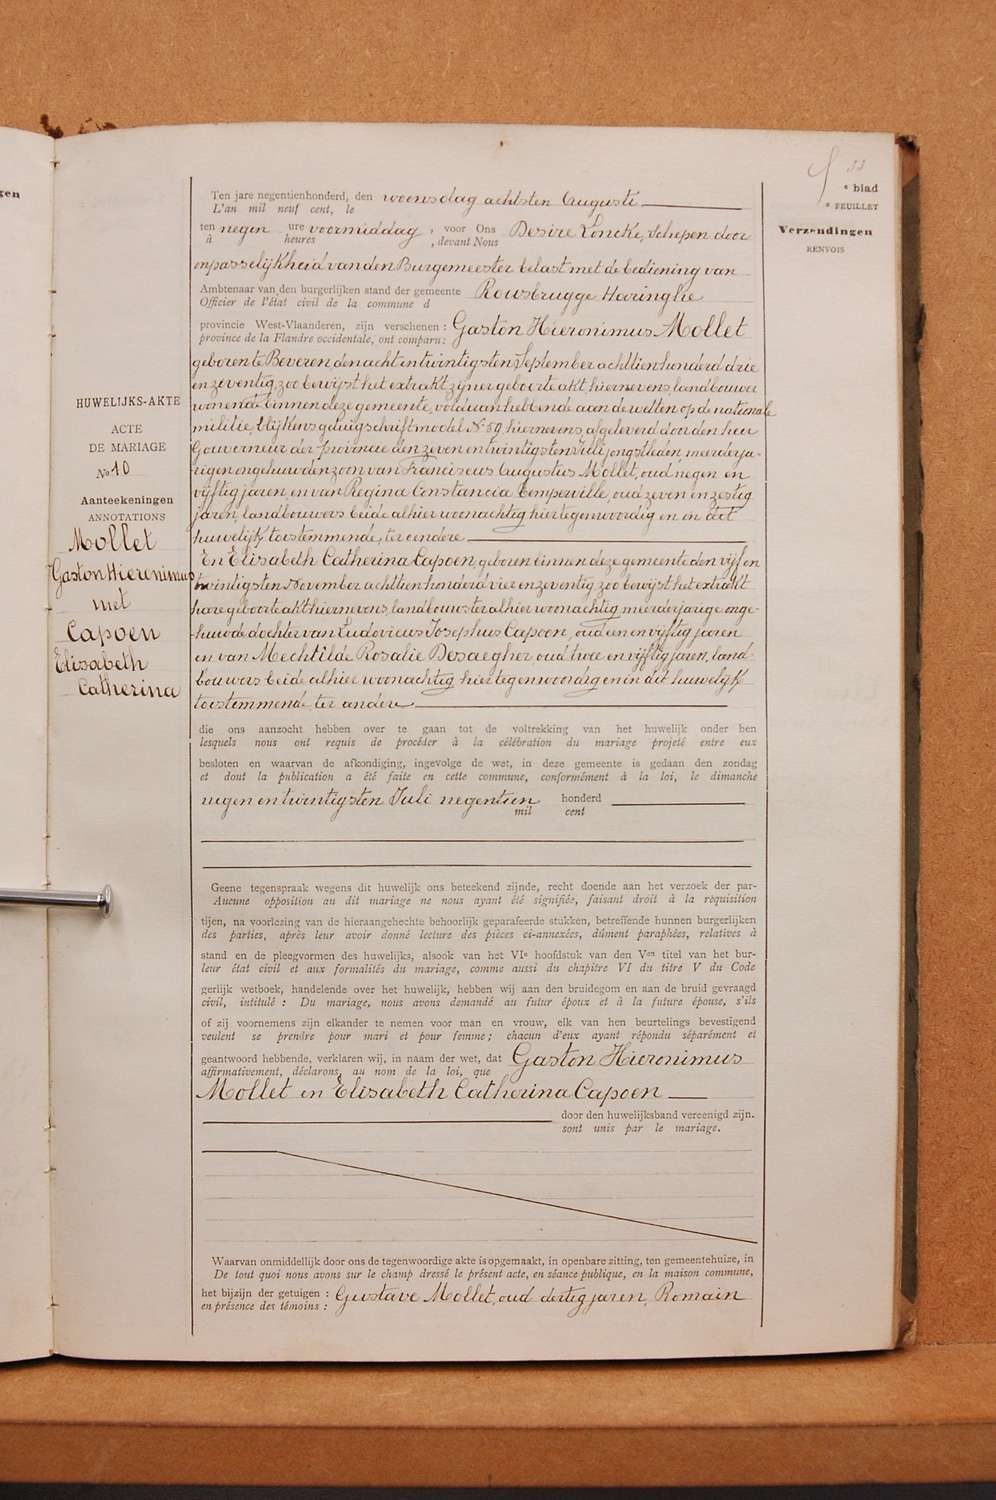 gen
33
e blad
e FEUILLET
Verzendingen
RENVOIS
Ten jare negentienhonderd, den woensdag achtsten Augusti
L'an mil neuf cent, le
ten negen ure voormiddag, voor Ons Desiré Loncke, Schepen door
à heures , devant Nous
onpasselijkheid van den Burgemeester belast met de bediening van
Ambtenaar van den burgerlijken stand der gemeente Rousbrugge Haringhe
Officier de l'état civil de la commune d
provincie West-Vlaanderen, zijn verschenen : Gaston Hieronimus Mollet
province de la Flandre occidentale, ont comparu :
geboren te Beveren, den acht en twintigsten September achttien honderd drie
en zeventig, zoo bewijst het extrakt zijner geboorte akt, hiernevens, landbouwer
wonende binnen deze gemeente, voldaan hebbende aan de wetten op de nationale
militie, blijkens getuigschrift model No 59 hiernevens, afgeleverd door den heer
Gouverneur der provincie den zeven en twintigsten Juli jongstleden, meerderja-
rigen ongehuwden zoon van Franciscus Augustus Mollet, oud negen en
vijftig jaren, en van Regina Constancia Comperville, oud zeven en zestig
jaren, landbouwers beide alhier woonachtig hier tegenwoordig en in dit
huwelijk toestemmende, ter eendere
En Elisabeth Catherina Capoen, geboren binnen deze gemeente den vijf en
twintigsten November achttien honderd vier en zeventig, zoo bewijst het extrakt
hare geboorte akt hiernevens, landbouwster alhier woonachtig, meerderjarige onge-
huwde dochter van Ludovicus Josephus Capoen, oud een en vijftig jaren
en van Mechtilde Rosalie Desaegher, oud twee en vijftig jaren, land-
bouwers beide alhier woonachtig, hier tegenwoordig en in dit huwelijk
toestemmende, ter andere
HUWELIJKS-AKTE
ACTE
DE MARIAGE
No 10
Aanteekeningen
ANNOTATIONS
Mollet
Gaston Hieronimus
met
Capoen
Elisabeth
Catherina
die ons aanzocht hebben over te gaan tot de voltrekking van het huwelijk onder hen
lesquels nous ont requis de procéder à la célébration du mariage projeté entre eux
besloten en waarvan de afkondiging, ingevolge de wet, in deze gemeente is gedaan den zondag
et dont la publication a été faite en cette commune, conformément à la loi, le dimanche
negen en twintigsten Juli negentien honderd
mil cent
Geene tegenspraak wegens dit huwelijk ons beteekend zijnde, recht doende aan het verzoek der par-
Aucune opposition au dit mariage ne nous ayant été signifiée, faisant droit à la réquisition
tijen, na voorlezing van de hieraangehechte behoorlijk geparafeerde stukken, betreffende hunnen burgerlijken
des parties, après leur avoir donné lecture des pièces ci-annexées, dûment paraphées, relatives à
stand en de pleegvormen des huwelijks, alsook van het VIe hoofdstuk van den Ven titel van het bur-
leur état civil et aux formalités du mariage, comme aussi du chapitre VI du titre V du Code
gerlijk wetboek, handelende over het huwelijk, hebben wij aan den bruidegom en aan de bruid gevraagd
civil, intitulé : Du mariage, nous avons demandé au futur époux et à la future épouse, s'ils
of zij voornemens zijn elkander te nemen voor man en vrouw, elk van hen beurtelings bevestigend
veulent se prendre pour mari et pour femme ; chacun d'eux ayant répondu séparément et
geantwoord hebbende, verklaren wij, in naam der wet, dat Gaston Hieronimus
affirmativement, déclarons, au nom de la loi, que
Mollet en Elisabeth Catherina Capoen
door den huwelijksband vereenigd zijn.
sont unis par le mariage.
Waarvan onmiddellijk door ons de tegenwoordige akte is opgemaakt, in openbare zitting, ten gemeentehuize, in
De tout quoi nous avons sur le champ dressé le présent acte, en séance publique, en la maison commune,
het bijzijn der getuigen : Gustave Mollet, oud dertig jaren, Romain
en présence des témoins :